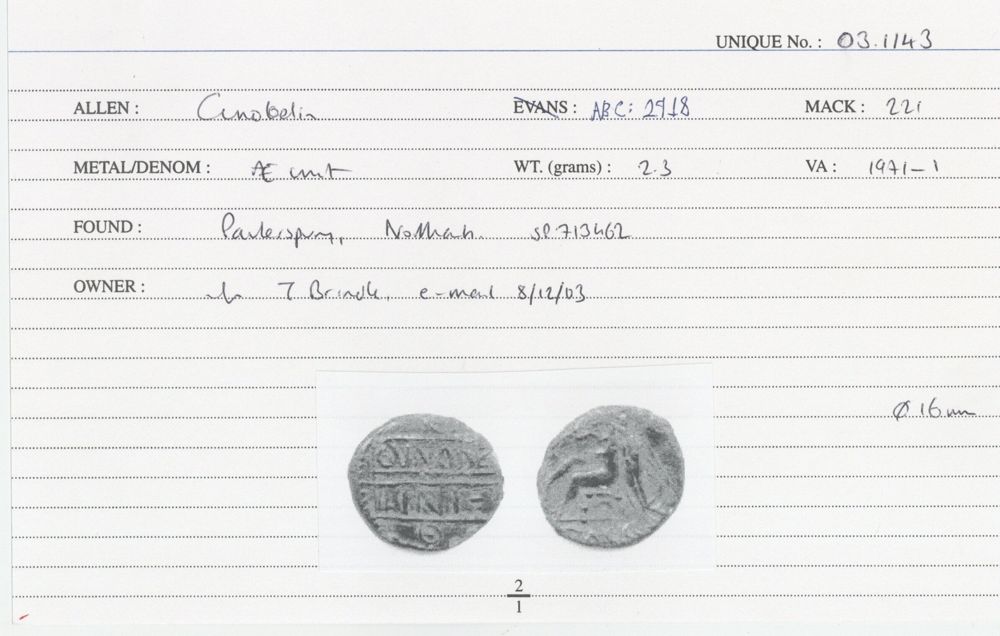 UNIQUE No. : 03.1143
ALLEN : Cunobelin EVANS : ABC: 2918 MACK : 221
METAL/DENOM : Æ unit WT. (grams) : 2.3 VA : 1971-1
FOUND : Paulerspury, Northants. SP 713462
OWNER : T Brindle, e-mail 8/12/03
Ø 16 mm
2
1